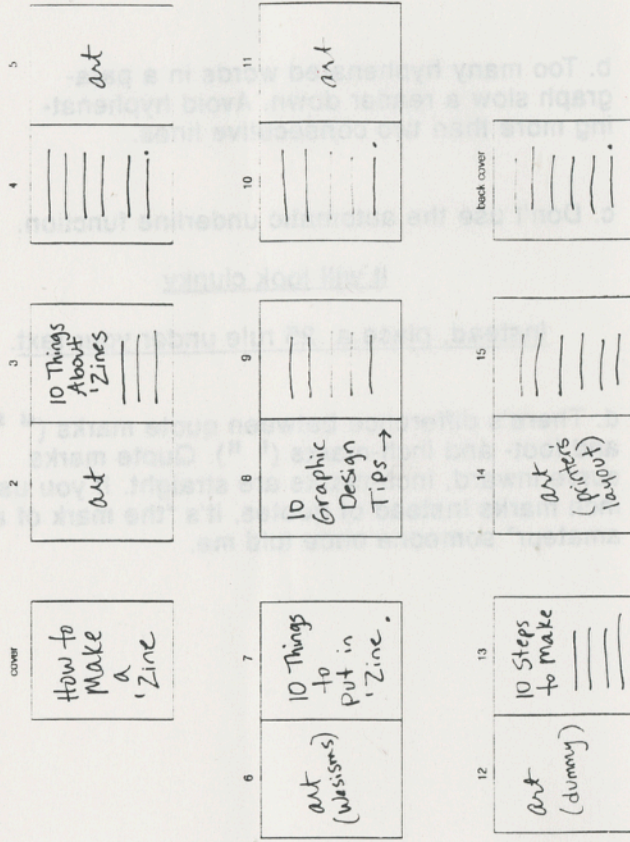 cover
How to
Make
a
'Zine
2
art
3
10 Things
About
'Zines
4
5
art
6
art
(Wesisms)
7
10 Things
to
put in
'Zine.
8
10
Graphic
Design
Tips →
9
10
11
art
12
art
(dummy)
13
10 Steps
to make
14
art
(printers
layout)
15
back cover